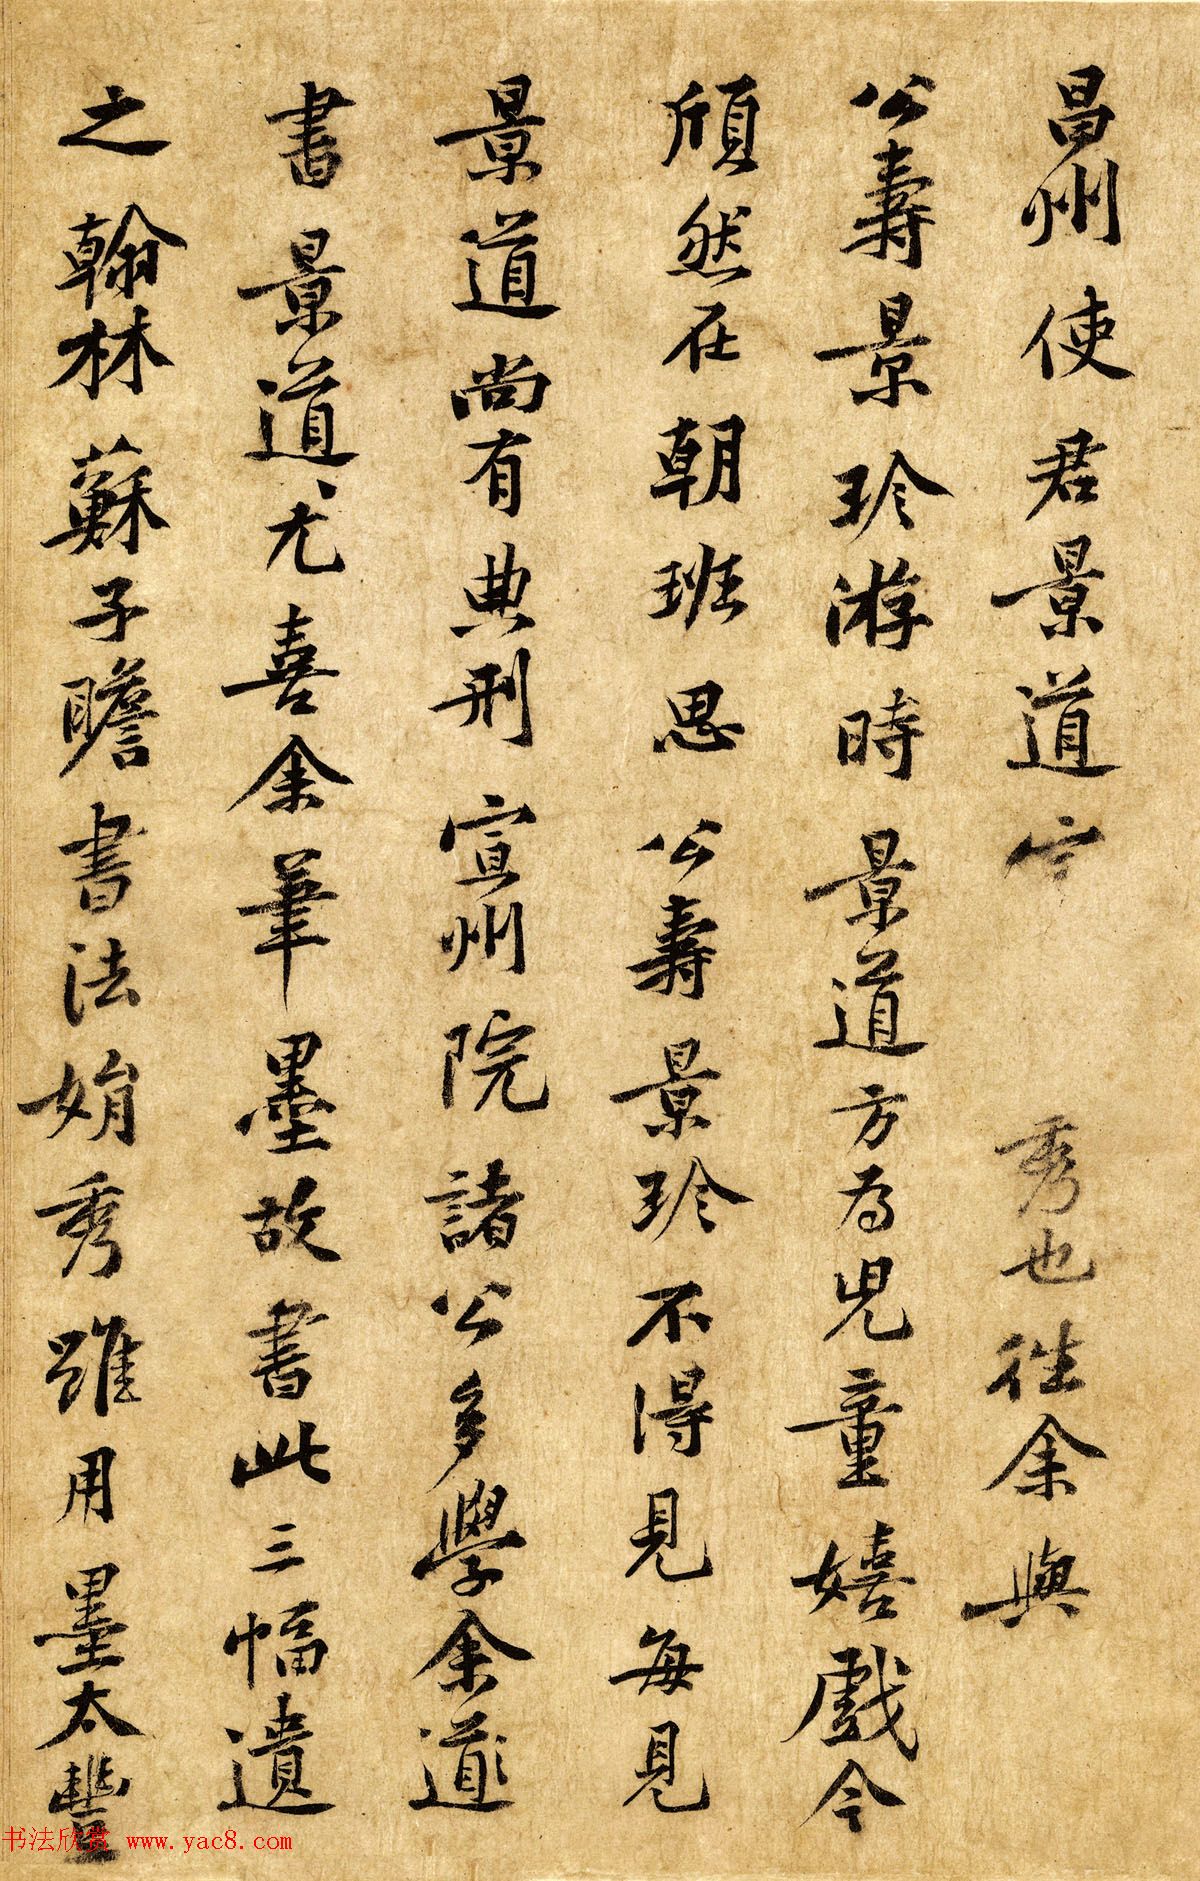 昌州使君景道宗秀也往余與
公壽景珍游時景道方為兒童嬉戲今
頎然在朝班思公壽景珍不得見每見
景道尚有典刑宣州院諸公多學余
書景道尤喜余筆墨故書此三幅遺
之翰林蘇子瞻書法娟秀雖用墨太豐
书法欣赏 www.yac8.com